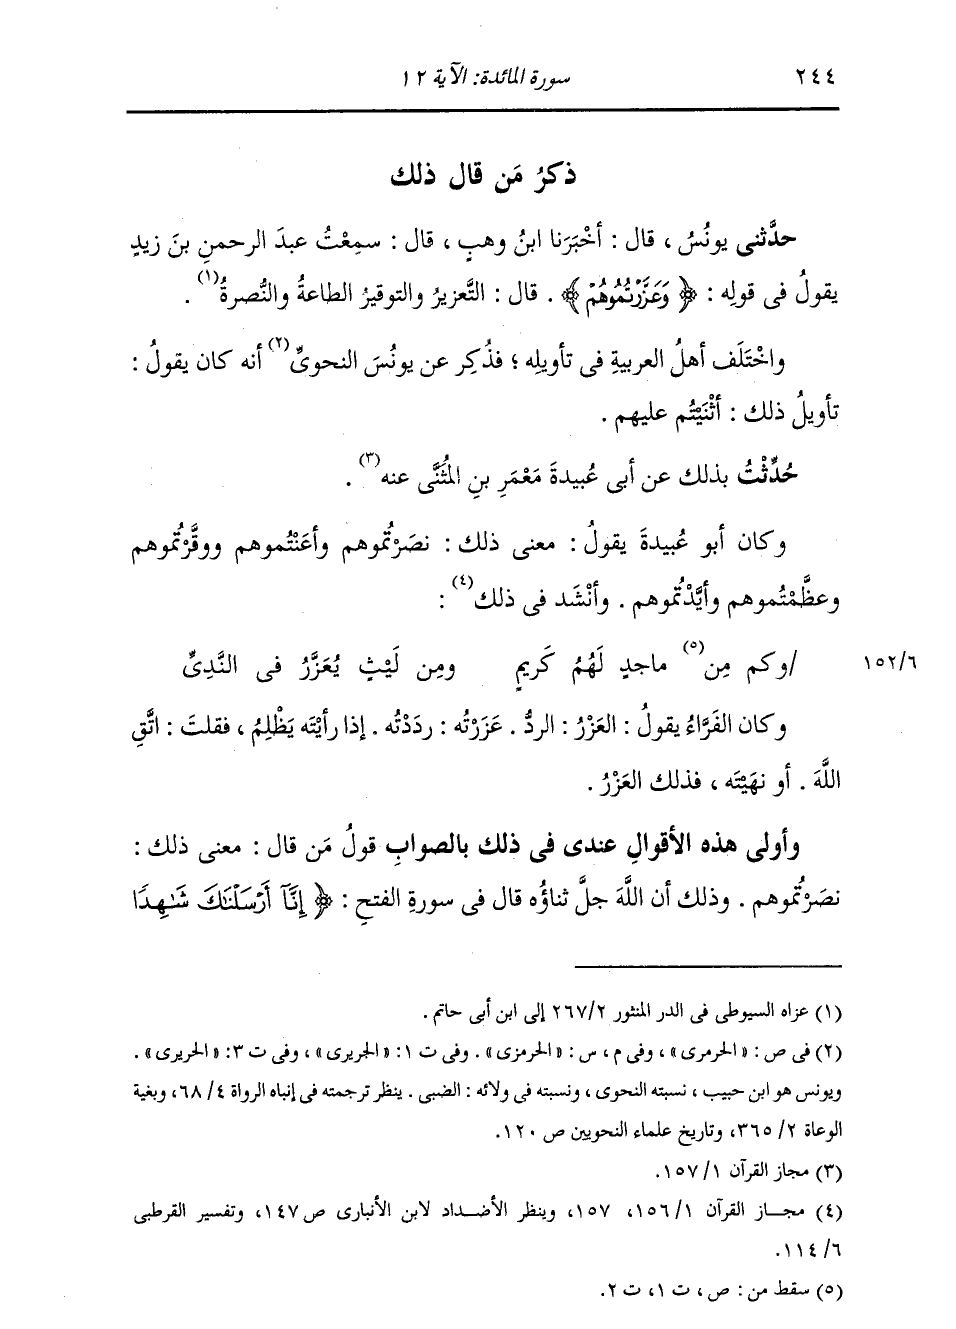 ٢٤٤ سورة المائدة: الآية ١٢
ذكرُ مَن قال ذلك
حدَّثنى يونُسُ ، قال : أخْبَرَنا ابنُ وهبٍ ، قال : سمِعْتُ عبدَ الرحمنِ بنَ زيدٍ
يقولُ فى قولِه : ﴿ وَعَزَّرْتُمُوهُمْ ﴾ . قال : التَّعزيرُ والتوقيرُ الطاعةُ والنُّصرةُ(١) .
واخْتَلَف أهلُ العربيةِ فى تأويلِه ؛ فذُكِر عن يونُسَ النحوىِّ(٢) أنه كان يقولُ :
تأويلُ ذلك : أثْنَيْتُم عليهم .
حُدِّثْتُ بذلك عن أبى عُبيدةَ مَعْمَرِ بنِ المُثَنَّى عنه(٣) .
وكان أبو عُبيدةَ يقولُ : معنى ذلك : نصَرْتُموهم وأعَنْتُموهم ووقَّرْتُموهم
وعظَّمْتُموهم وأيَّدْتُموهم . وأنْشَد فى ذلك(٤) :
/وكم مِن(٥) ماجدٍ لَهُمُ كَريمٍ ومِن لَيْثٍ يُعَزَّرُ فى النَّدِىِّ ١٥٢/٦
وكان الفَرَّاءُ يقولُ : العَزْرُ : الردُّ . عَزَرْتُه : ردَدْتُه . إذا رأيْتَه يَظْلِمُ ، فقلتَ : اتَّقِ
اللَّهَ . أو نهَيْتَه ، فذلك العَزْرُ .
وأولى هذه الأقوالِ عندى فى ذلك بالصوابِ قولُ مَن قال : معنى ذلك :
نصَرْتُموهم . وذلك أن اللَّهَ جلَّ ثناؤُه قال فى سورةِ الفتحِ : ﴿ إِنَّآ أَرْسَلْنَٰكَ شَٰهِدًا
(١) عزاه السيوطى فى الدر المنثور ٢٦٧/٢ إلى ابن أبى حاتم .
(٢) فى ص : «الحرمرى» ، وفى م ، س : «الحرمزى» . وفى ت ١: «الجريرى» ، وفى ت ٣: «الحريرى» .
ويونس هو ابن حبيب ، نسبته النحوى ، ونسبته فى ولائه : الضبى . ينظر ترجمته فى إنباه الرواة ٤/ ٦٨، وبغية
الوعاة ٢/ ٣٦٥، وتاريخ علماء النحويين ص ١٢٠.
(٣) مجاز القرآن ١/ ١٥٧.
(٤) مجـاز القرآن ١/ ١٥٦، ١٥٧، وينظر الأضـداد لابن الأنبارى ص ١٤٧، وتفسير القرطبى
٦/ ١١٤.
(٥) سقط من : ص ، ت ١، ت ٢.